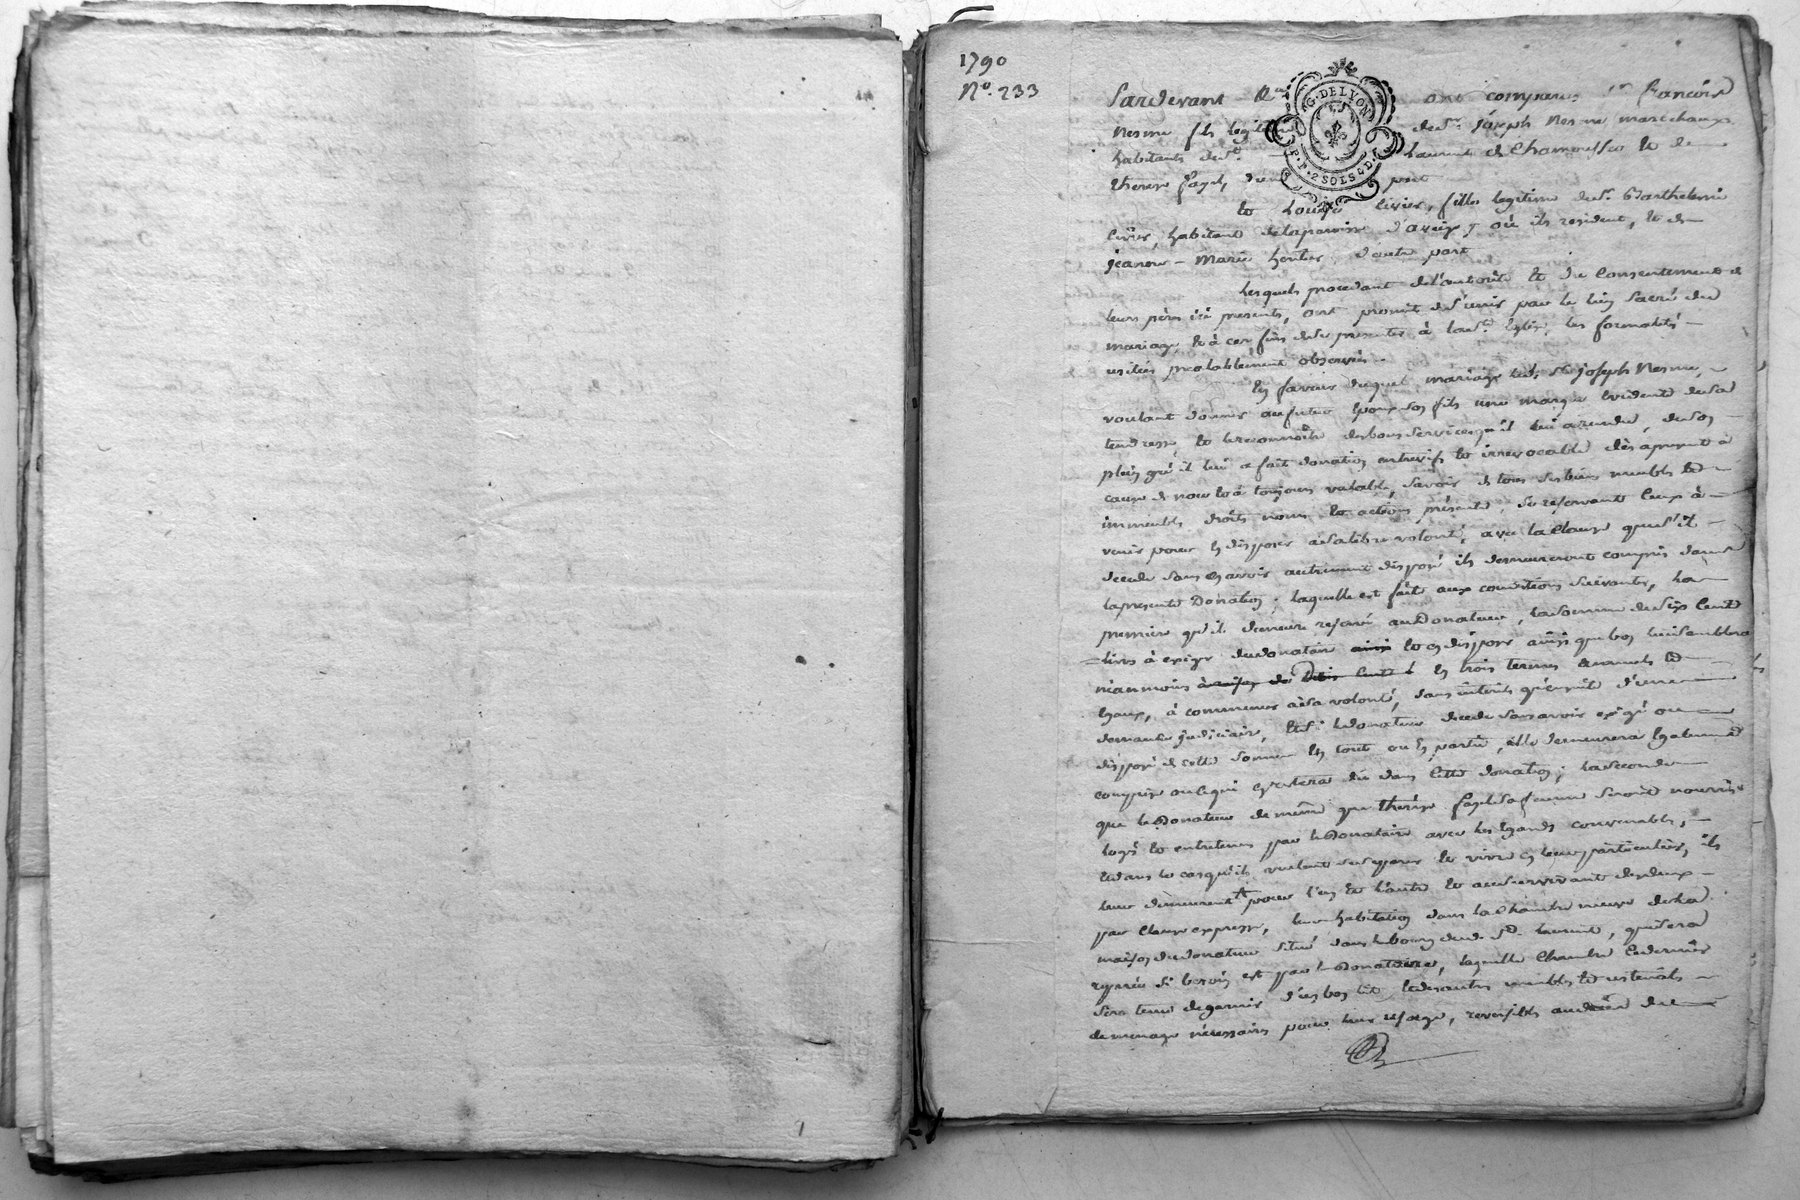 1790
N.o 233
G. DE LYON
P. P. 2 SOLS 4 D.
Pardevant ont comparu sr. francois
Nesme fils legitime de sr. Joseph Nesme marechaux
habitants de st. Laurent de Chamousset et de
therese fayel, d'une part
Et Louise filles legitime de sr. Barthelemi
habitant delaparoisse d'aveize où ils resident, et de
jeanne-Marie d'autre part
Lesquels procedant de l'autorité et du Consentement de
leurs pères ici presents, ont promit de s'unir par le lien sacré du
mariage et à ces fins de se presenter à la ste. Eglise, les formalités
usitées prealablement observées.
En faveur duquel mariage led. sr. joseph Nesme,
voulant donner au futur Epoux son fils une marque Evidente de sa
tendresse, et reconnoitre des bons services qu'il lui a rendu, de son
plein gré il lui a fait donation entrevifs et irrevocable dès apresent à
cause de noce et à toujours valable, savoir de tous ses biens meubles et
immeubles droits noms et actions présents, se reservant Ceux à
venir pour en disposer à sa libre volonté, avec la Clause que s'il
decede sans en avoir autrement disposé ils demeureront compris dans
la presente Donation; laquelle est faite aux conditions suivantes, La
premiere qu'il demeure reservé au Donateur, la somme de six Cent
livres à exiger du donataire et en disposer ainsi que bon lui semblera
neanmoins en trois termes annuels et
Egaux, à commencer à sa volonté, sans interets qu'ensuite d'une
demande judiciaire, Et si le donateur decede sans avoir exigé ou
disposé de cette somme En tout ou En partie, elle demeurera Egalement
comprise ou ce qui En restera dû dans Cette donation; la seconde
que le Donateur de même que therese fayel sa femme seront nourris
logés et entretenus par le Donataire avec les Egards convenables,
Et dans le cas qu'ils voulent se separer et vivre en leur particulier, ils
leur demeurent pour l'un et l'autre et au survivant des deux
par Clause expresse, leur habitation dans la Chambre neuve de la
maison du donateur situé dans le bourg dud. st. laurent, qui sera
reparée si besoin est par le Donataire, laquelle Chambre Ce dernier
sera tenu de garnir d'un bon lit et des autres meubles et ustensils
de menage nécessaires pour leur usage, reversibles au